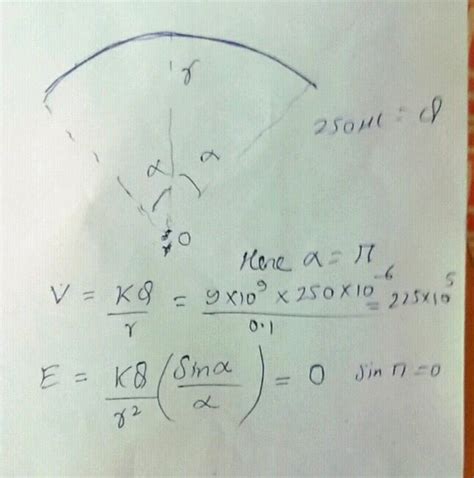 r
250μC = Q
α α
O
Here α = π
V = KQ/r = 9×10^9 × 250×10^-6/0.1 = 225×10^5
E = KQ/r^2 (Sinα/α) = 0 Sin π = 0